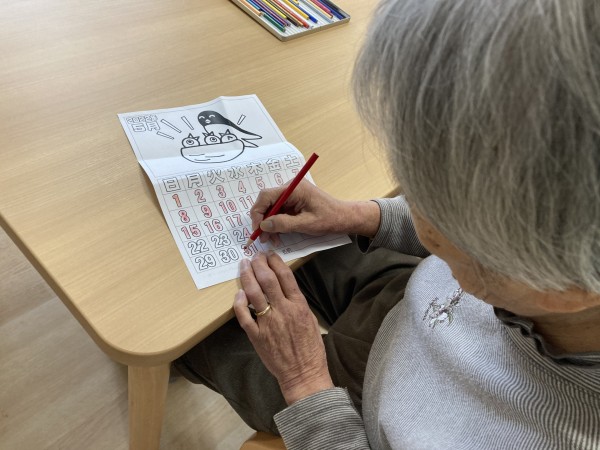 2022年
5月
日月火水木金土
1 2 3 4 5 6
8 9 10 11
15 16 17
22 23 24
29 30 31